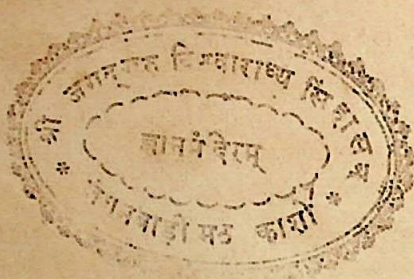 श्री जगद्गुरु विश्वाराध्य सिंहासन
ज्ञानमंदिरम्
जंगमवाडी मठ काशी